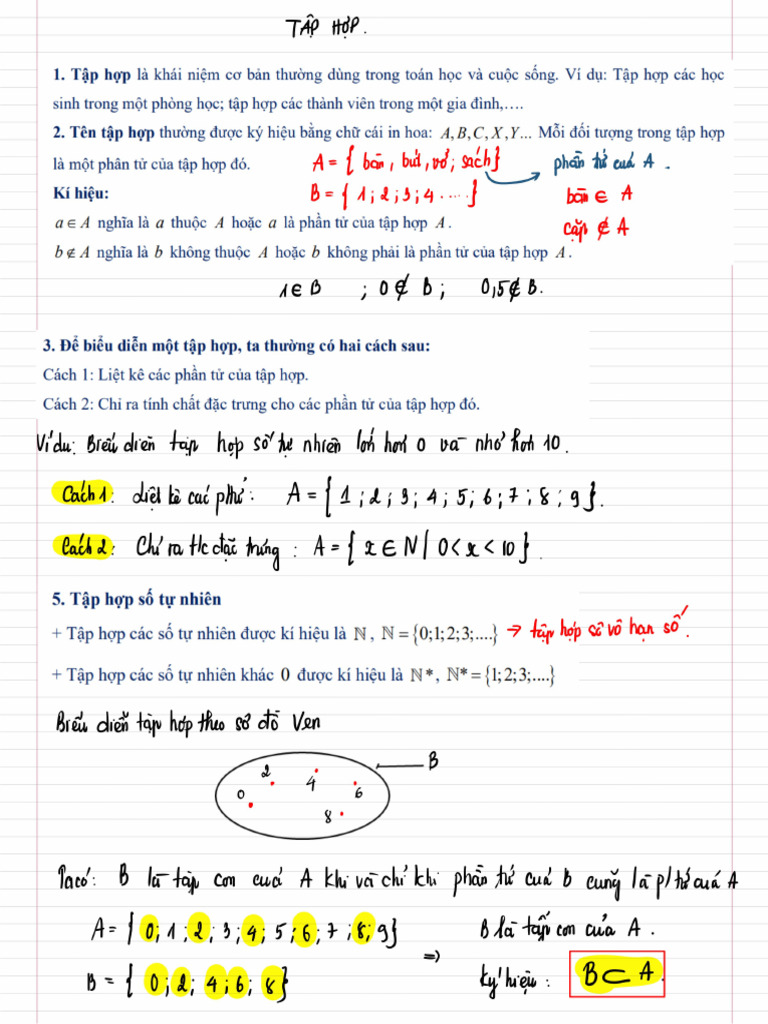 TẬP HỢP.
1. Tập hợp là khái niệm cơ bản thường dùng trong toán học và cuộc sống. Ví dụ: Tập hợp các học
sinh trong một phòng học; tập hợp các thành viên trong một gia đình,….
2. Tên tập hợp thường được ký hiệu bằng chữ cái in hoa: A, B, C, X, Y... Mỗi đối tượng trong tập hợp
là một phân tử của tập hợp đó. A = { bàn, bút, vở; sách} phần tử của A.
Kí hiệu: B = { 1; 2; 3; 4 .....} bàn ∈ A
a ∈ A nghĩa là a thuộc A hoặc a là phần tử của tập hợp A. cặp ∉ A
b ∉ A nghĩa là b không thuộc A hoặc b không phải là phần tử của tập hợp A.
1 ∈ B ; 0 ∉ B; 0,5 ∉ B.
3. Để biểu diễn một tập hợp, ta thường có hai cách sau:
Cách 1: Liệt kê các phần tử của tập hợp.
Cách 2: Chỉ ra tính chất đặc trưng cho các phần tử của tập hợp đó.
Ví dụ: Biểu diễn tập hợp số tự nhiên lớn hơn 0 và nhỏ hơn 10.
Cách 1: Liệt kê các p/tử: A = { 1; 2; 3; 4; 5; 6; 7; 8; 9}.
Cách 2: Chỉ ra t/c đặc trưng: A = { x ∈ N / 0 < x < 10}.
5. Tập hợp số tự nhiên
+ Tập hợp các số tự nhiên được kí hiệu là ℕ, ℕ = {0;1;2;3;....} → tập hợp số vô hạn số.
+ Tập hợp các số tự nhiên khác 0 được kí hiệu là ℕ*, ℕ* = {1;2;3;....}
Biểu diễn tập hợp theo sơ đồ Ven
B
2 4
0 6
8
Ta có: B là tập con của A khi và chỉ khi phần tử của B cũng là p/tử của A
A = { 0; 1; 2; 3; 4; 5; 6; 7; 8; 9} B là tập con của A.
B = { 0; 2; 4; 6; 8} ⇒ Ký hiệu: B ⊂ A.